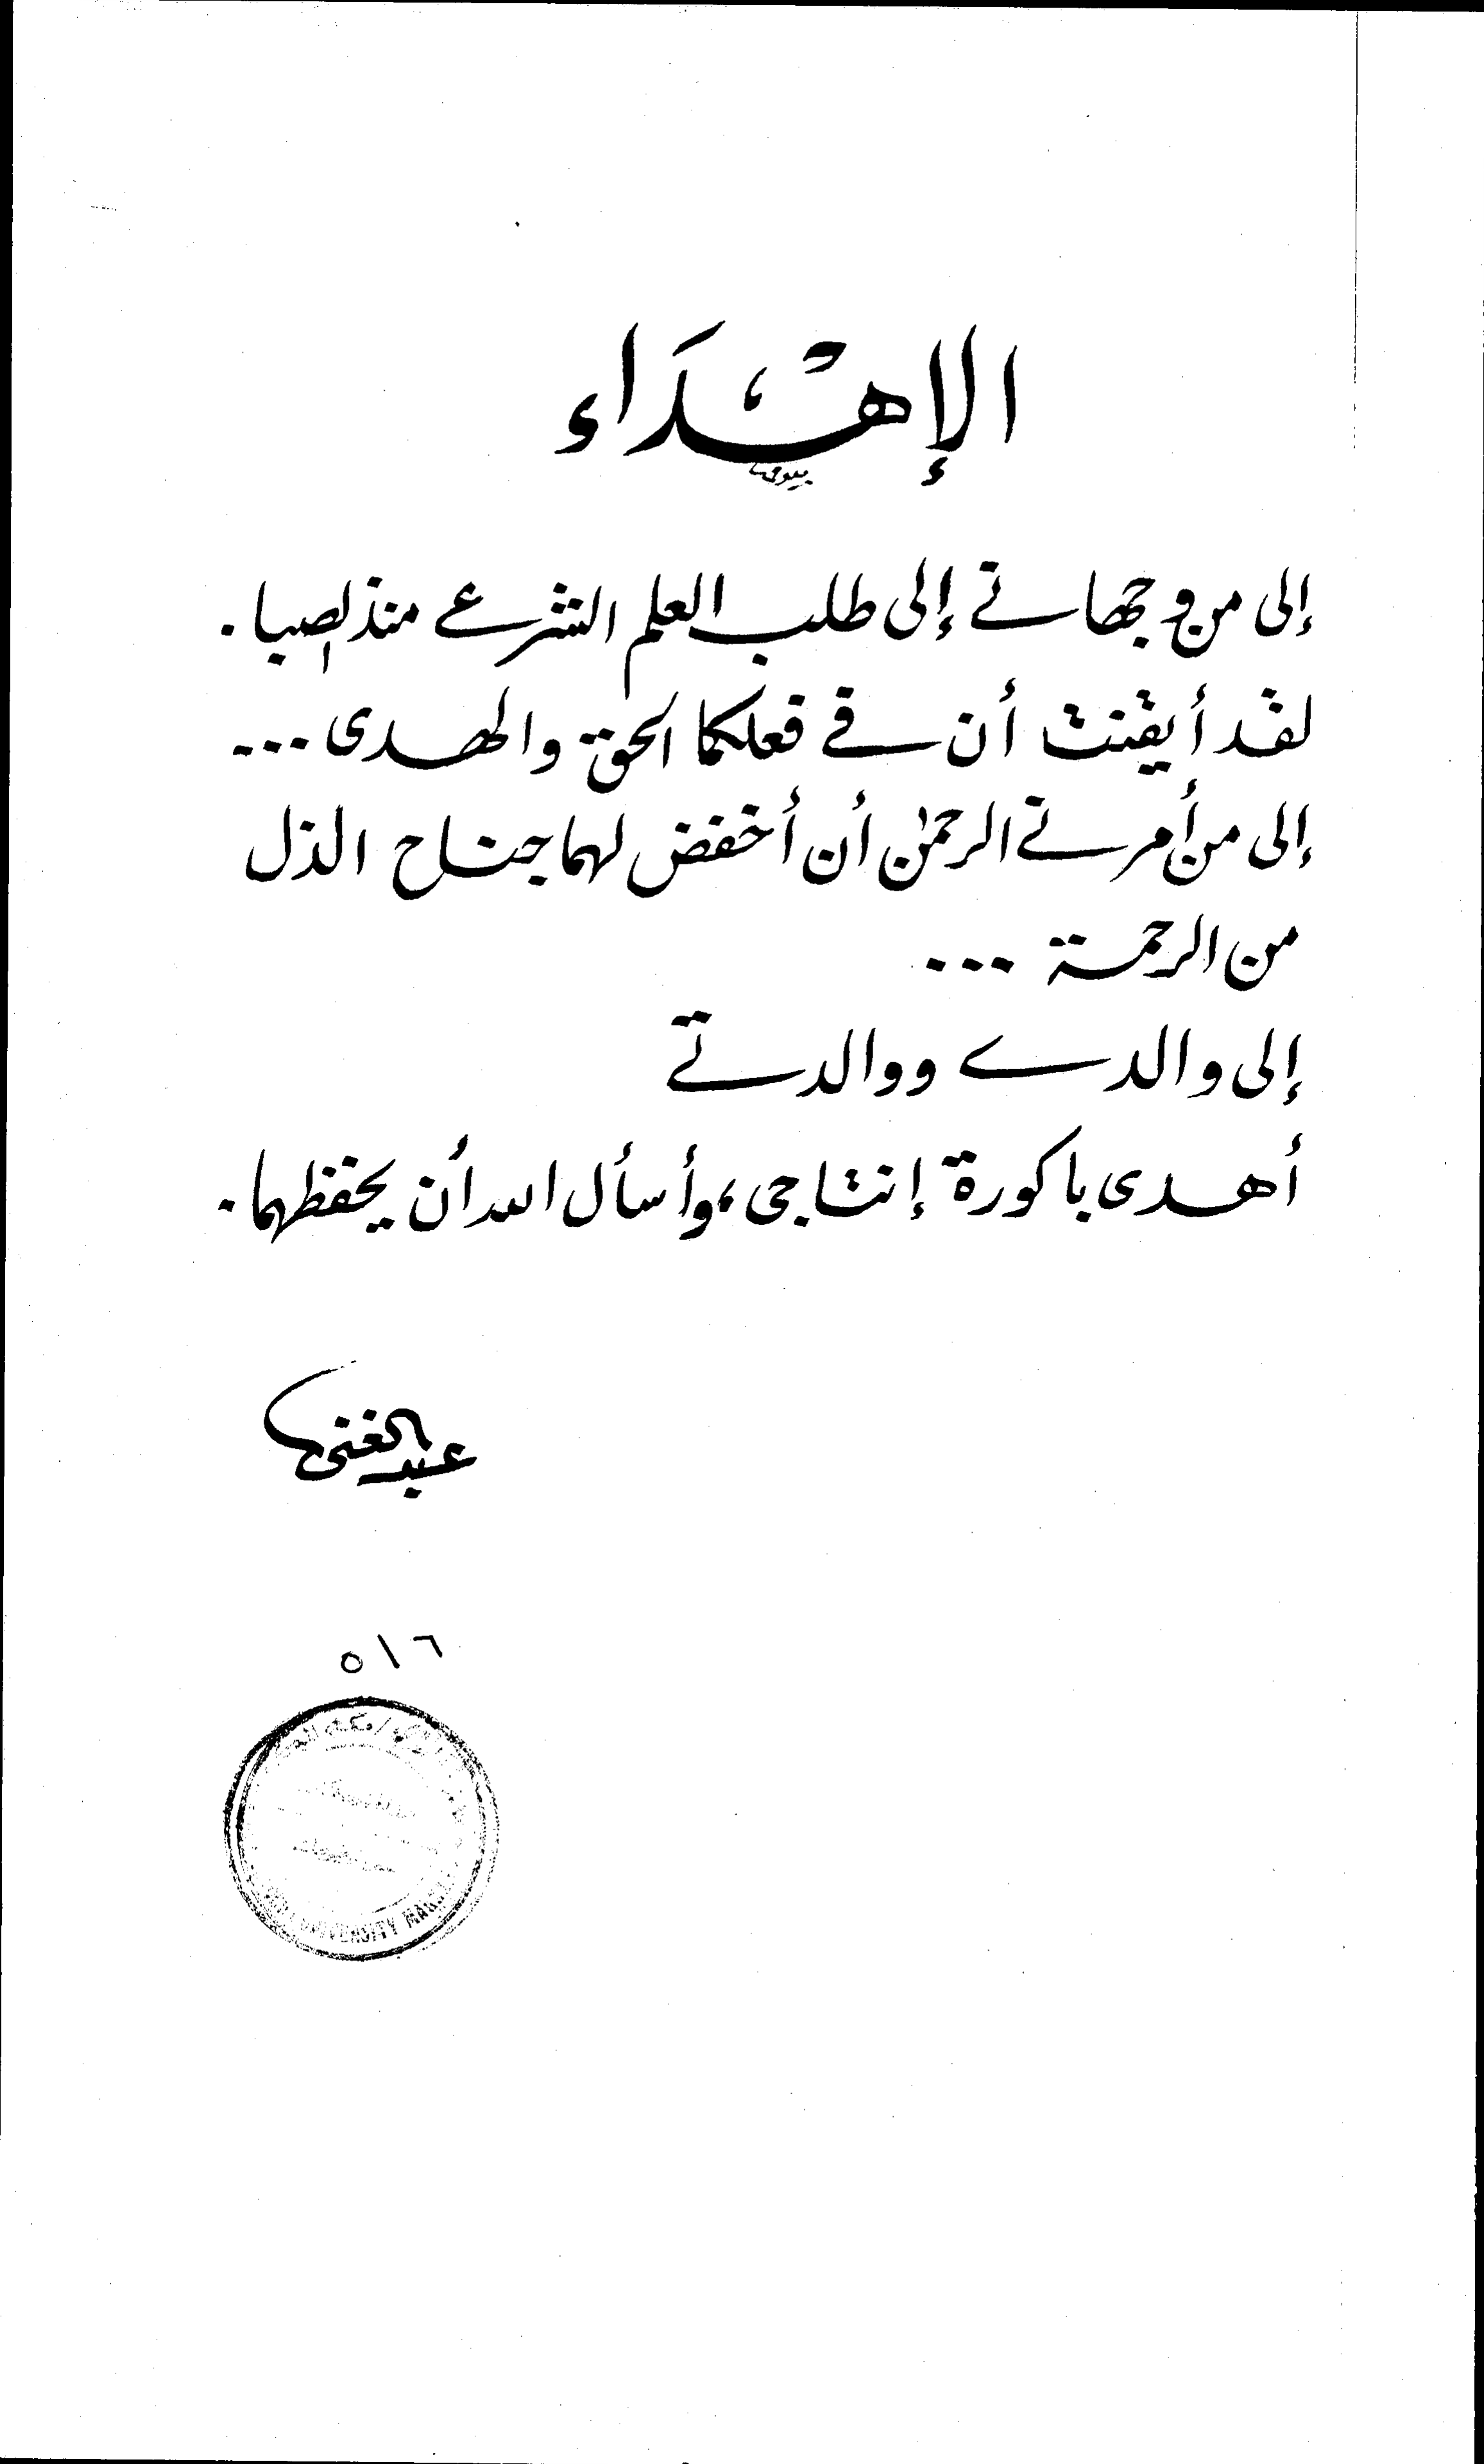 الإهْدَاء
إلى من وجهاني إلى طلب العلم الشرعي منذ الصبا.
لقد أيقنت أن في فعلكما الحق والهدى ...
إلى من أمرني الرحمن أن أخفض لهما جناح الذل
من الرحمة ...
إلى والدي ووالدتي
أهدى باكورة إنتاجى، وأسأل الله أن يحفظهما.
عبد الغنى
٥١٦
UNIVERSITY